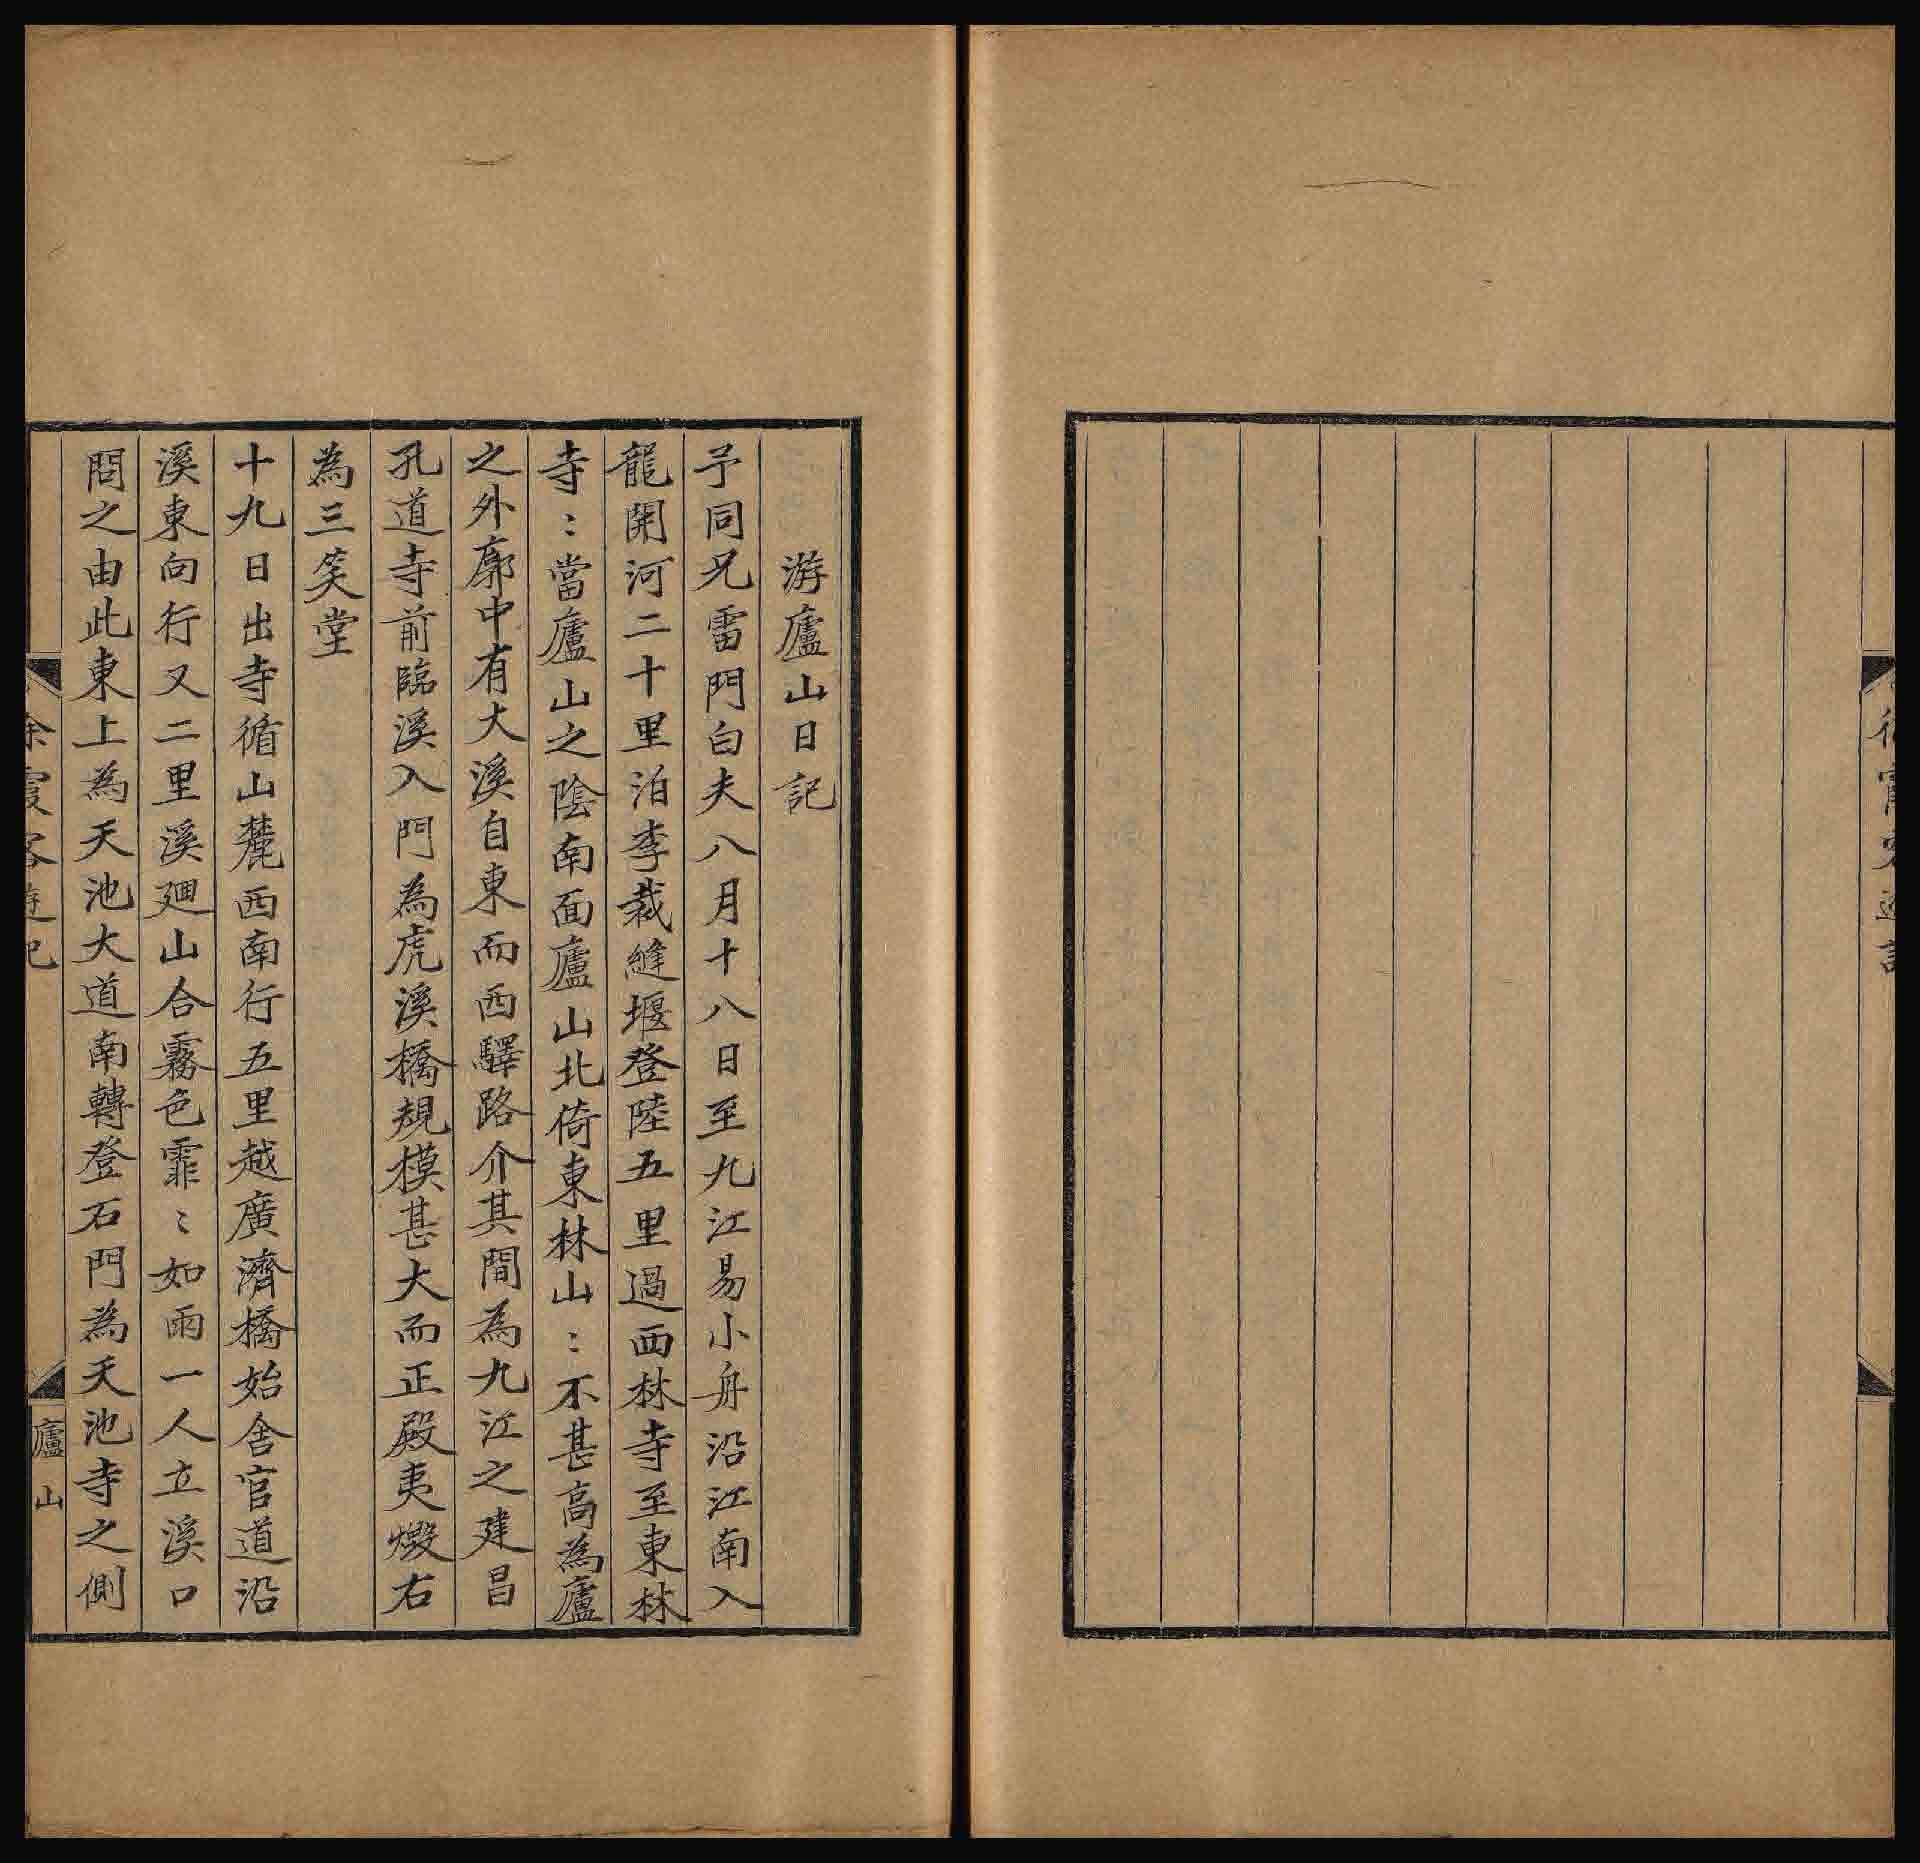 徐霞客遊記
游廬山日記
予同兄雷門白夫八月十八日至九江易小舟沿江南入
龍開河二十里泊李裁縫堰登陸五里過西林寺至東林
寺〻當廬山之陰南面廬山北倚東林山〻不甚高為廬
之外廓中有大溪自東而西驛路介其間為九江之建昌
孔道寺前臨溪入門為虎溪橋規模甚大而正殿夷燬右
為三笑堂
十九日出寺循山麓西南行五里越廣濟橋始舍官道沿
溪東向行又二里溪廻山合霧色霏〻如雨一人立溪口
問之由此東上為天池大道南轉登石門為天池寺之側
徐霞客遊記
廬山